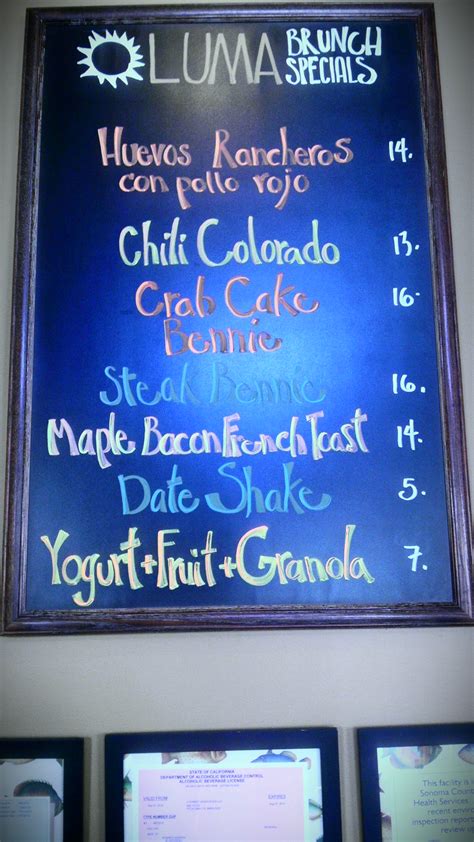 LUMA BRUNCH SPECIALS
Huevos Rancheros 14.
con pollo rojo
Chili Colorado 13.
Crab Cake 16.
Bennie
Steak Bennie 16.
Maple Bacon French Toast 14.
Date Shake 5.
Yogurt+Fruit+Granola 7.
STATE OF CALIFORNIA
DEPARTMENT OF ALCOHOLIC BEVERAGE CONTROL
ALCOHOLIC BEVERAGE LICENSE
VALID FROM EXPIRES
This facility is
Sonoma Coun
Health Services
recent enviro
inspection repor
review